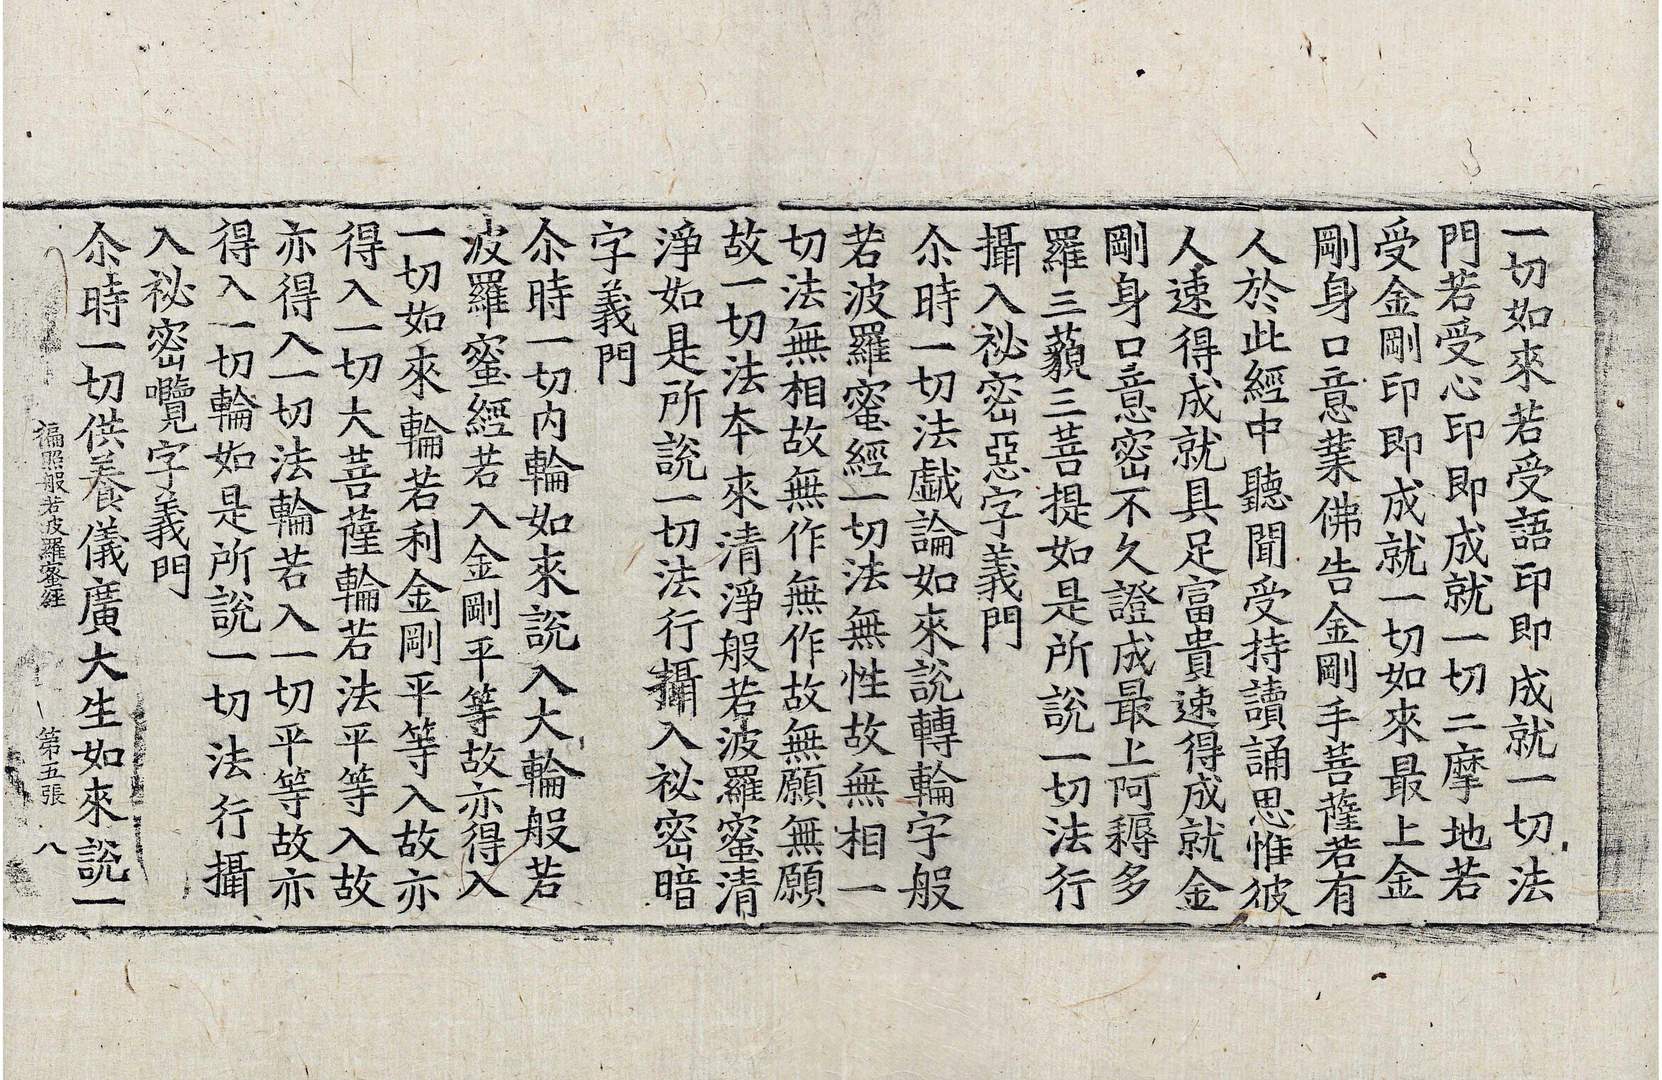 一切如來若受語印即成就一切法
門若受心印即成就一切三摩地若
受金剛印即成就一切如來最上金
剛身口意業佛告金剛手菩薩若有
人於此經中聽聞受持讀誦思惟彼
人速得成就具足富貴速得成就金
剛身口意密不久證成最上阿耨多
羅三藐三菩提如是所說一切法行
攝入祕密惡字義門
尒時一切法戱論如來說轉輪字般
若波羅蜜經一切法無性故無相一
切法無相故無作無作故無願無願
故一切法本來清淨般若波羅蜜清
淨如是所說一切法行攝入祕密暗
字義門
尒時一切內輪如來說入大輪般若
波羅蜜經若入金剛平等故亦得入
一切如來輪若利金剛平等入故亦
得入一切大菩薩輪若法平等入故
亦得入一切法輪若入一切平等故亦
得入一切輪如是所說一切法行攝
入祕密囕字義門
徧照般若波羅蜜經 第五張 八
尒時一切供養儀廣大生如來說一